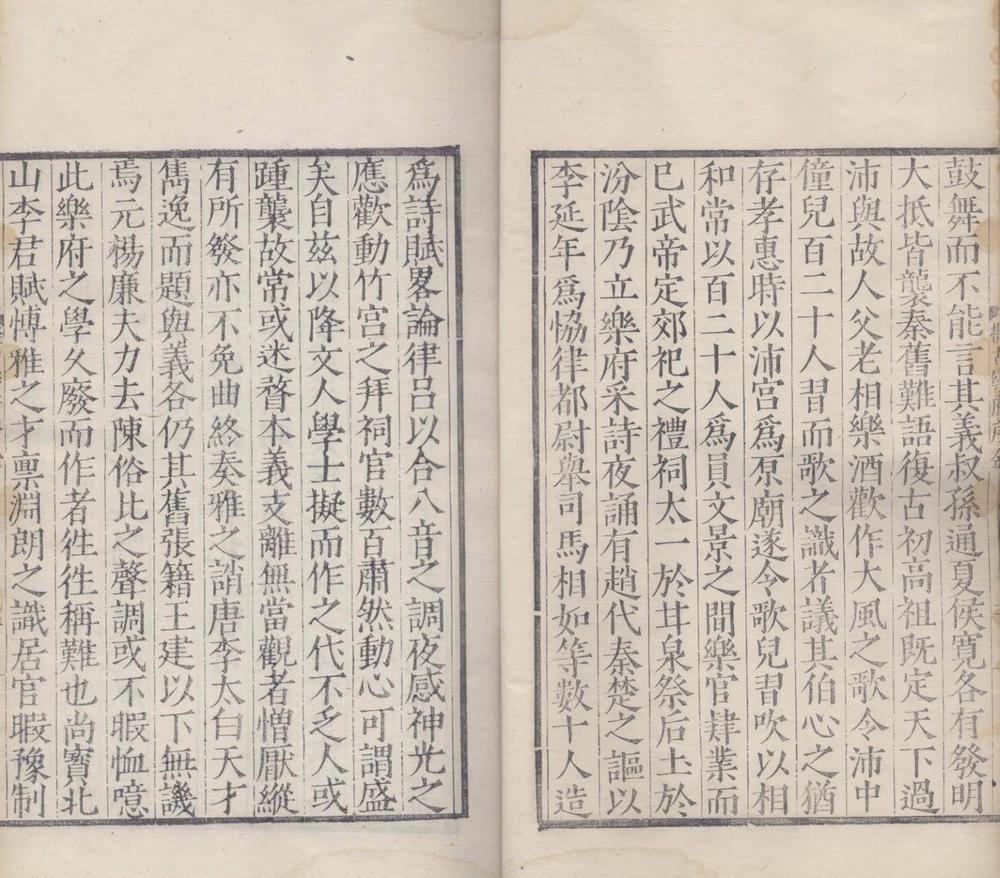 鼓舞而不能言其義叔孫通夏侯寬各有發明
大抵皆襲秦舊難語復古初高祖既定天下過
沛與故人父老相樂酒歡作大風之歌令沛中
僮兒百二十人習而歌之識者議其伯心之猶
存孝惠時以沛宮爲原廟遂令歌兒習吹以相
和常以百二十人爲員文景之間樂官肄業而
已武帝定郊祀之禮祠太一於甘泉祭后土於
汾陰乃立樂府采詩夜誦有趙代秦楚之謳以
李延年爲恊律都尉舉司馬相如等數十人造
爲詩賦畧論律吕以合八音之調夜感神光之
應歡動竹宮之拜祠官數百肅然動心可謂盛
矣自茲以降文人學士擬而作之代不乏人或
踵襲故常或迷瞀本義支離無當觀者憎厭縱
有所發亦不免曲終奏雅之誚唐李太白天才
雋逸而題與義各仍其舊張籍王建以下無譏
焉元楊廉夫力去陳俗比之聲調或不暇恤噫
此樂府之學久廢而作者徃徃稱難也尚寶北
山李君賦愽雅之才禀淵朗之識居官暇豫制